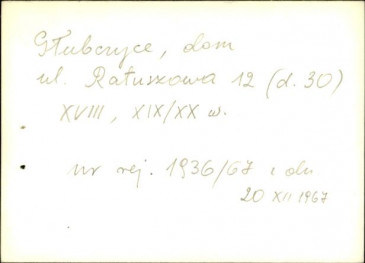 Głubczyce, dom
ul. Ratuszowa 12 (d. 30)
XVIII, XIX/XX w.
nr rej. 1936/67 z dn
20 XII 1967